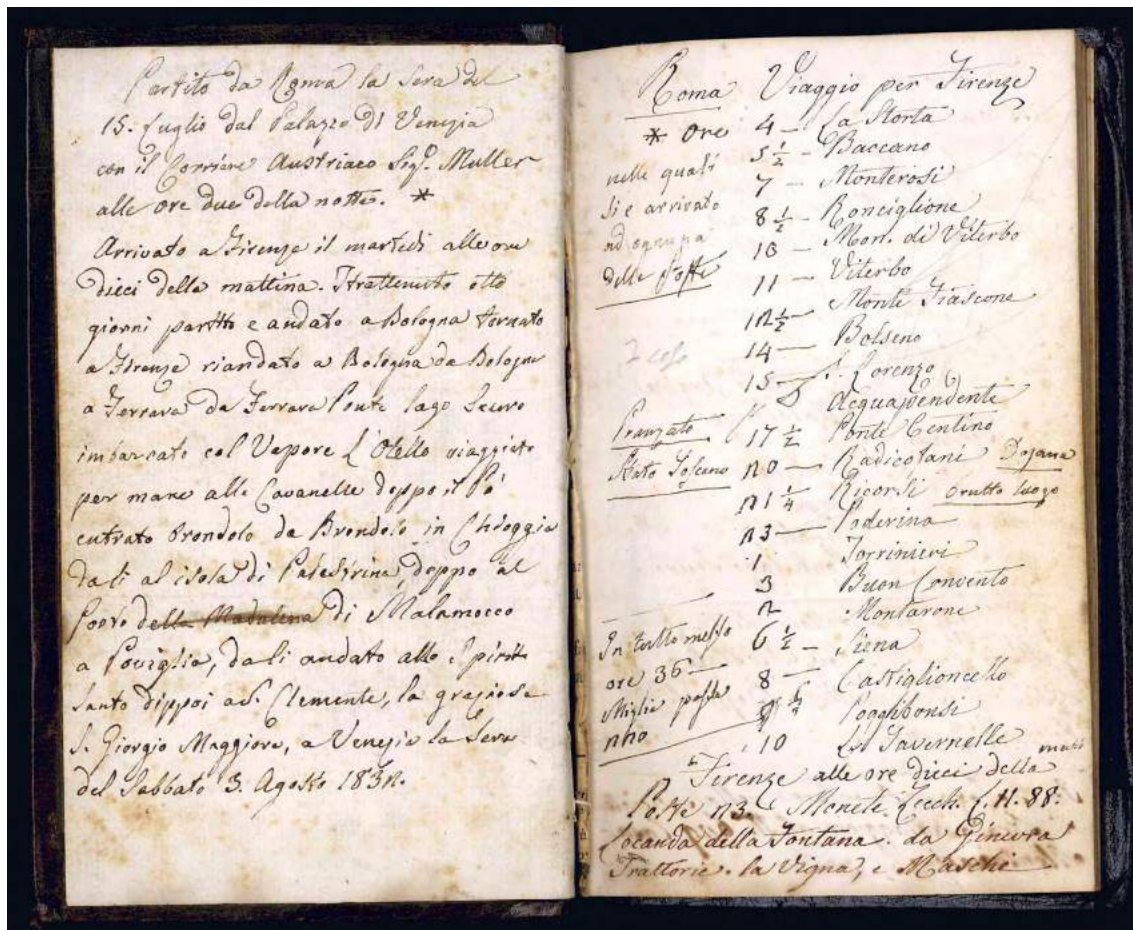 Partito da Roma la Sera del
15. Luglio dal Palazzo di Venezia
con il Corriere Austriaco Sigr. Muller
alle ore due della notte. *
Arrivato a Firenze il martedi alle ore
dieci della mattina. Trattenuto otto
giorni partito e andato a Bologna tornato
a Firenze riandato a Bologna da Bologna
a Ferrara da Ferrara Ponte lago Scuro
imbarcato col Vapore L'Otello viaggiato
per mare alle Cavanelle doppo il Pò
entrato Brondolo da Brondolo in Chioggia
da li al isola di Palestrina, doppo al
Porto della Madalena di Malamocco
a Poviglia, da li andato allo Spirito
Santo dippoi a S. Clemente, la graziosa
S. Giorgio Maggiore, a Venezia la Sera
del Sabbato 3. Agosto
Roma Viaggio per Firenze
* Ore 4 — La Storta
nelle quali 5 ½ — Baccano
si e arrivato 7 — Monterosi
ad ognuna 8 ½ — Ronciglione
delle Poste 10 — Mon. di Viterbo
11 — Viterbo
12 ½ — Monte Fiascone
14 — Bolseno
15 — S. Lorenzo
Acquapendente
Pranzato 17 ½ Ponte Centino
Stato Toscano 20 — Radicofani Dogana
21 ¼ Ricorsi brutto luogo
23 — Poderina
1 Torrinieri
3 Buon Convento
2 Montarone
In tutto messo 6 ½ — Siena
ore 36 — 8 — Castiglioncello
Miglia Poggibonsi
10 Le Tavernelle
Firenze alle ore dieci della
Poste 23. Monete Zecch.
Locanda della Fontana. da Ginevra
Trattorie. la Vigna, e Maschi